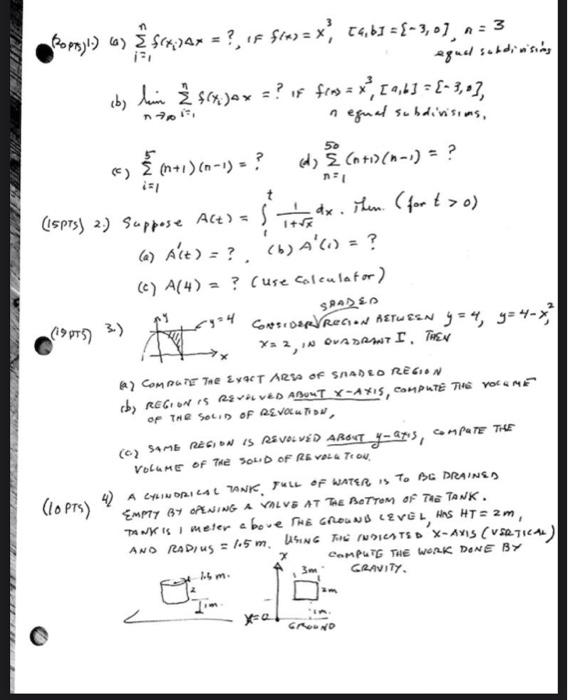 (20pts) 1.) (a) n Σ i=1 f(xᵢ)Δx = ?, IF f(x) = x³, [a,b] = [-3,0], n = 3
equal subdivisions
(b) lim n→∞ n Σ i=1 f(xᵢ)Δx = ? IF f(x) = x³, [a,b] = [-3,0],
n equal subdivisions.
(c) 5 Σ i=1 (n+1)(n-1) = ? (d) 50 Σ n=1 (n+1)(n-1) = ?
(15PTS) 2.) Suppose A(t) = ∫ 1 t 1/(1+√x) dx. Then (for t > 0)
(a) A'(t) = ?. (b) A'(1) = ?
(c) A(4) = ? (use calculator)
(19PTS) 3.) y y=4 x
SHADED
CONSIDER REGION BETWEEN y = 4, y = 4-x²,
x = 2, IN QUADRANT I. THEN
(a) COMPUTE THE EXACT AREA OF SHADED REGION
(b) REGION IS REVOLVED ABOUT X-AXIS, COMPUTE THE VOLUME
OF THE SOLID OF REVOLUTION,
(c) SAME REGION IS REVOLVED ABOUT y-axis, COMPUTE THE
VOLUME OF THE SOLID OF REVOLUTION.
(10PTS) 4) A CYLINDRICAL TANK, FULL OF WATER IS TO BE DRAINED
EMPTY BY OPENING A VALVE AT THE BOTTOM OF THE TANK.
TANK IS 1 meter above THE GROUND LEVEL, HAS HT = 2m,
AND RADIUS = 1.5 m. USING THE INDICATED X-AXIS (VERTICAL)
COMPUTE THE WORK DONE BY
GRAVITY.
1.5 m.
2
1m.
x
3m
2m
1m.
X=0
GROUND